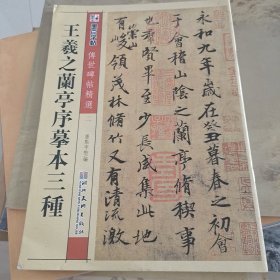 永和九年歲在癸丑暮春之初會
于會稽山陰之蘭亭脩稧事
也羣賢畢至少長咸集此地
有崇山峻領茂林脩竹又有清流激
傳世碑帖精選
王羲之蘭亭序摹本三種